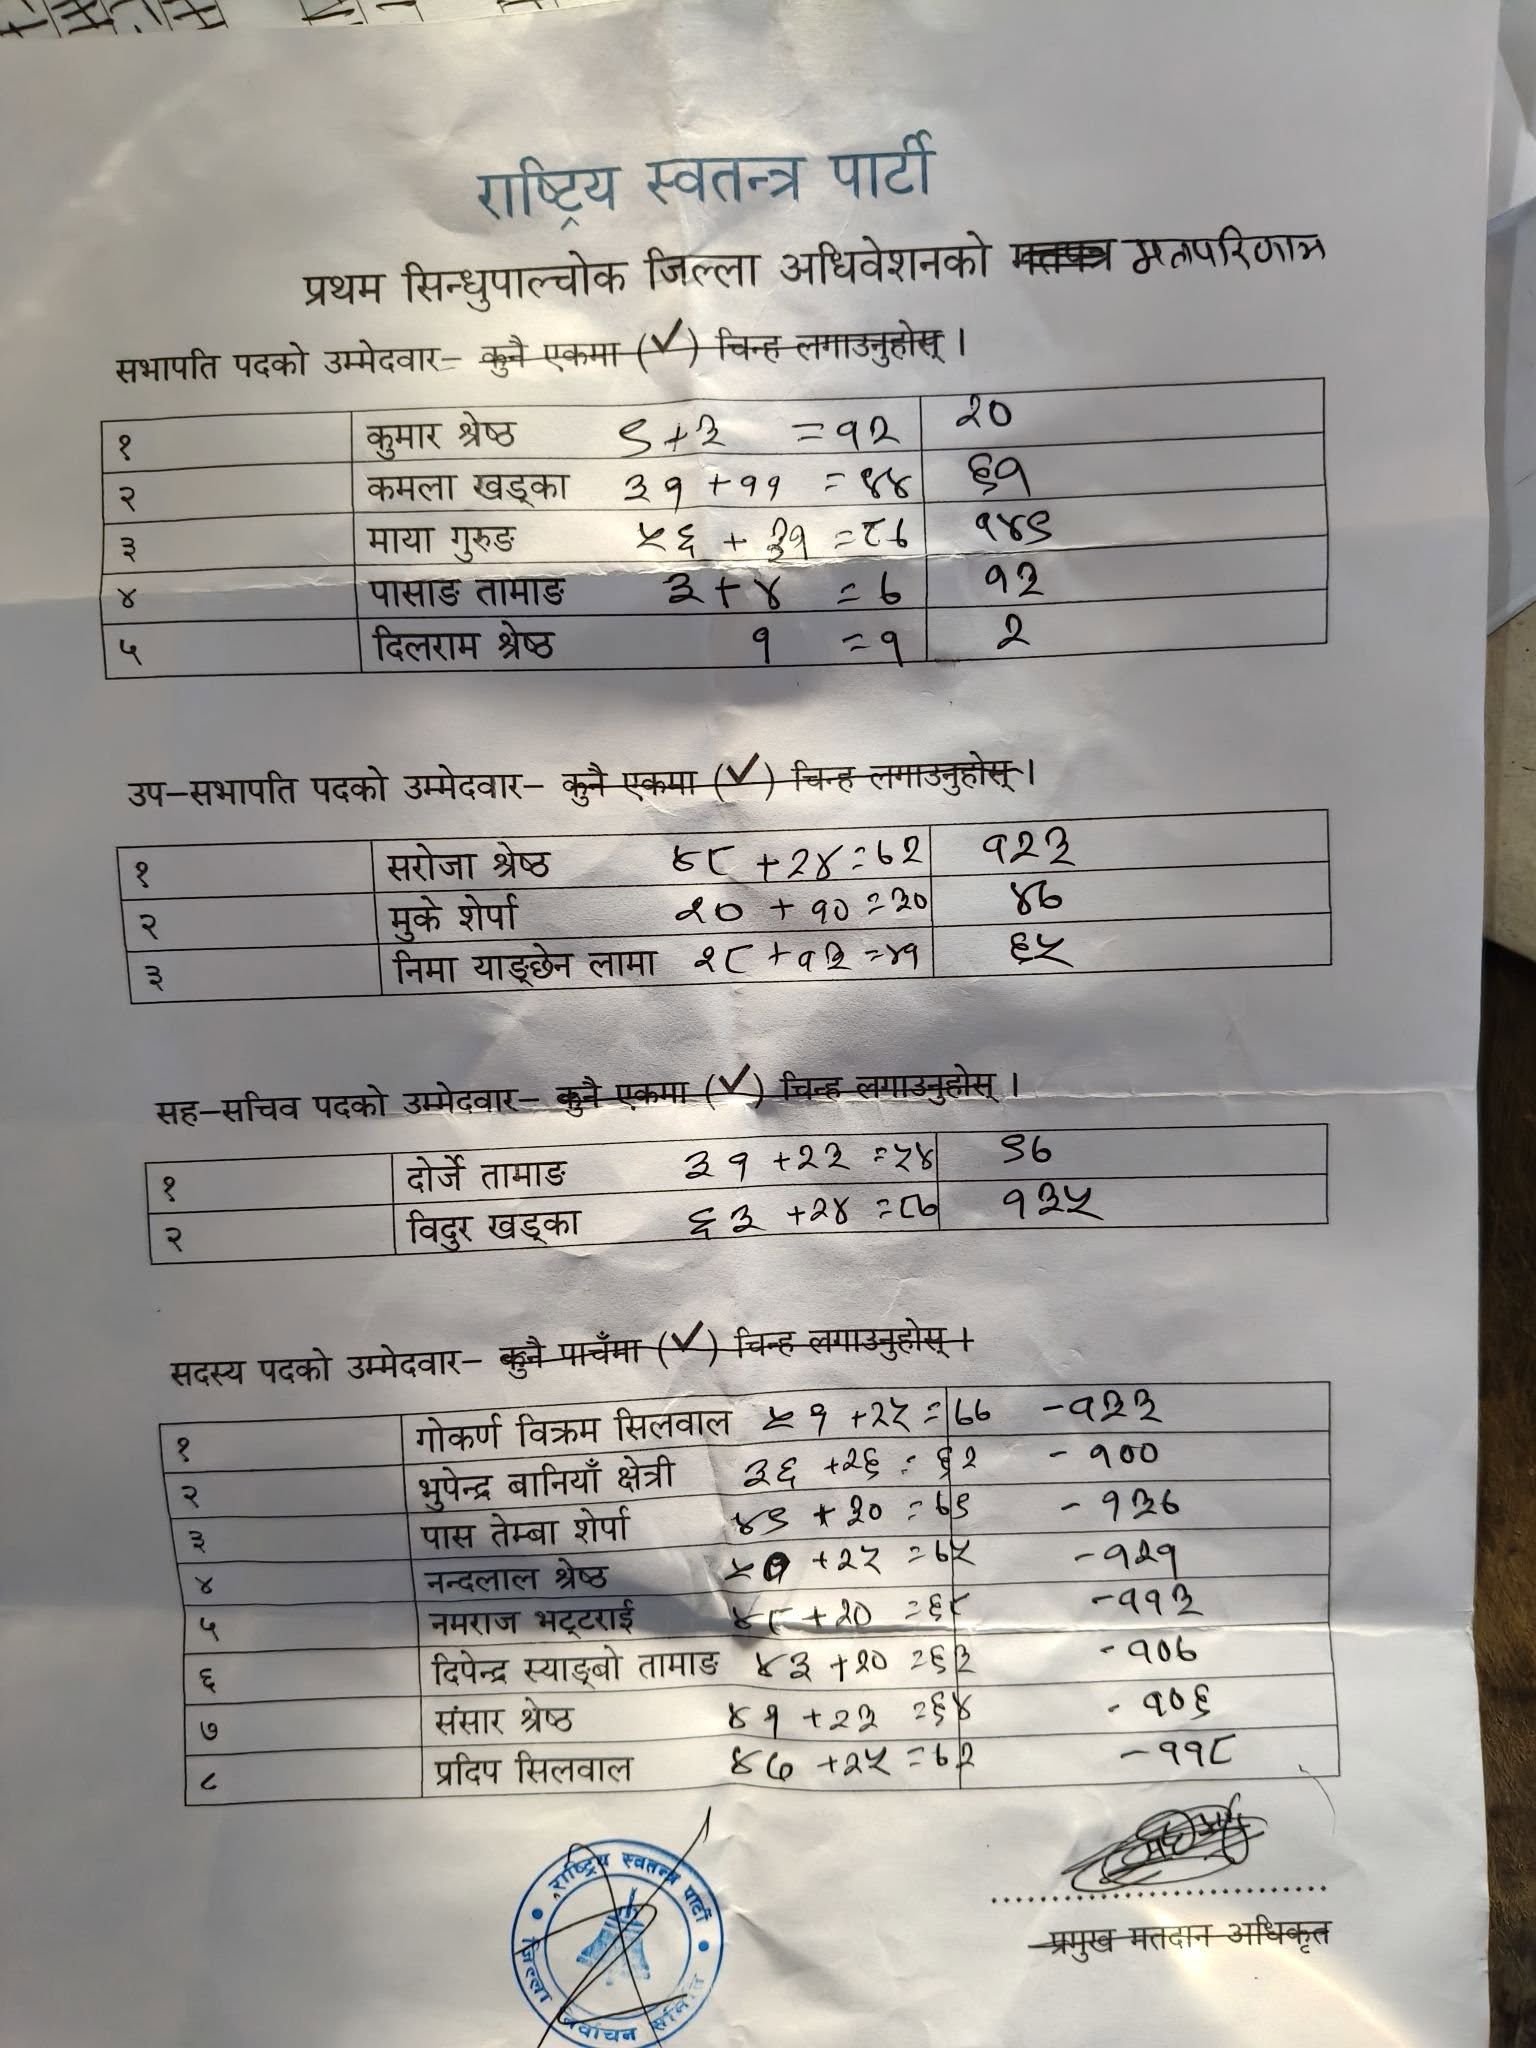 राष्ट्रिय स्वतन्त्र पार्टी
प्रथम सिन्धुपाल्चोक जिल्ला अधिवेशनको मतपत्र मतपरिणाम
सभापति पदको उम्मेदवार– कुनै एकमा (✓) चिन्ह लगाउनुहोस् ।
१ कुमार श्रेष्ठ ९+३ =१२ २०
२ कमला खड्का ३१ +११ =४४ ६१
३ माया गुरुङ ५६ + ३१ =८७ १४९
४ पासाङ तामाङ ३+४ =७ १३
५ दिलराम श्रेष्ठ १ =१ २
उप–सभापति पदको उम्मेदवार– कुनै एकमा (✓) चिन्ह लगाउनुहोस् ।
१ सरोजा श्रेष्ठ ४८ +२४=७२ १२३
२ मुके शेर्पा २० +१०=३० ४७
३ निमा याङ्छेन लामा २८+१३=४१ ६५
सह–सचिव पदको उम्मेदवार– कुनै एकमा (✓) चिन्ह लगाउनुहोस् ।
१ दोर्जे तामाङ ३१+२३=५४ ९७
२ विदुर खड्का ६३+२४=८७ १३५
सदस्य पदको उम्मेदवार– कुनै पाचँमा (✓) चिन्ह लगाउनुहोस् ।
१ गोकर्ण विक्रम सिलवाल ५१+२५=७७ -१३३
२ भुपेन्द्र बानियाँ क्षेत्री ३६+२६=६२ -१००
३ पास तेम्बा शेर्पा ४९+३०=७९ -१३७
४ नन्दलाल श्रेष्ठ +२५=७५ -१२१
५ नमराज भट्टराई ४८+२०=६८ -११३
६ दिपेन्द्र स्याङ्बो तामाङ ४३+२०=६३ -१०७
७ संसार श्रेष्ठ ४१+२३=६४ -१०६
८ प्रदिप सिलवाल ४७+२५=७२ -११८
राष्ट्रिय स्वतन्त्र पार्टी
जिल्ला निर्वाचन समिति
प्रमुख मतदान अधिकृत